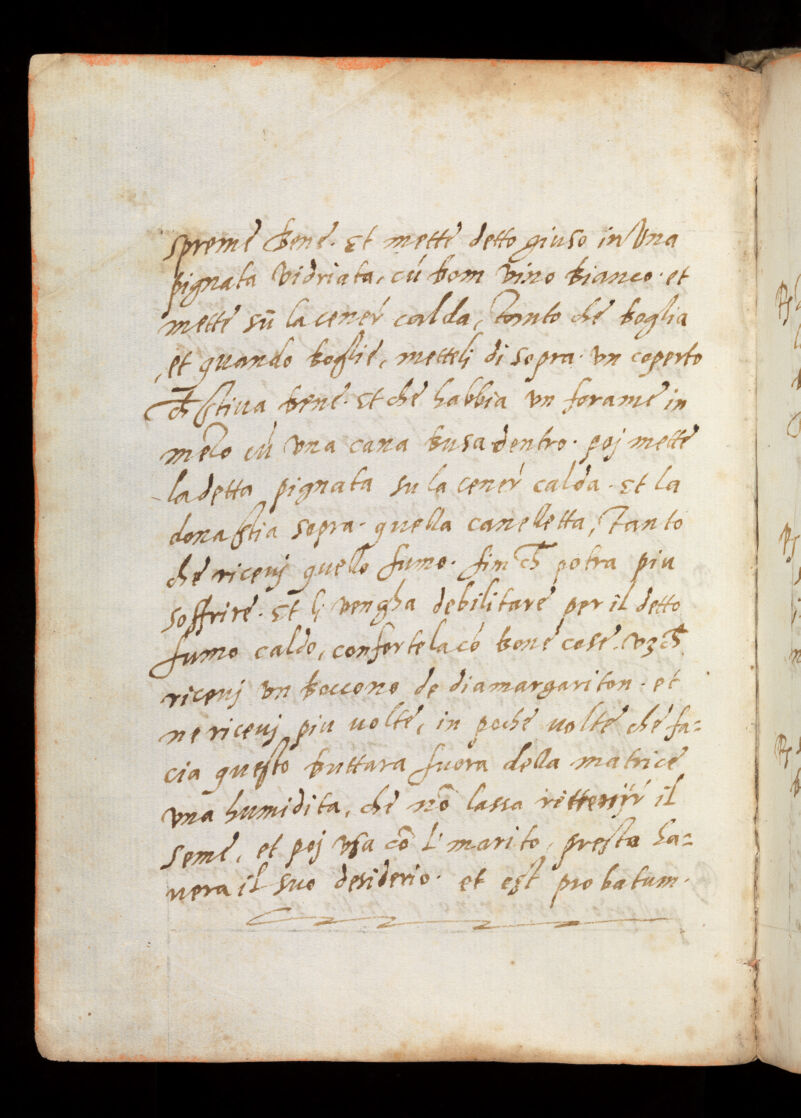 spreme bene. Et mette detto giuso in una
pignata vidriata, cú bom vino bianco. et
mette sū la cener calda, Tanto che boglia
et quando boglie, metteli di sopra un coperto
ch̄ stiua bene. Et che habbia un forame in
mezo cú una cana busa dentro. poj mette
la detta pignata su la cener calda. Et la
dona stia sopra quella canelletta, Tanto
che riceuj quello fumo. fin ch̄ potra piu
soffrire. Et li vengha debilitare per il detto
fumo caldo, confortela có bone cose.
riceuj un boccone de diamargariton. et
ne riceuj piu uolte, in poche uolte che fa=
cia questo buttara fuora della matrice
una humidita, che nō lassa il
seme, et poj usa cō l' marito, presta ha=
uera il suo desiderio. et est probatum.